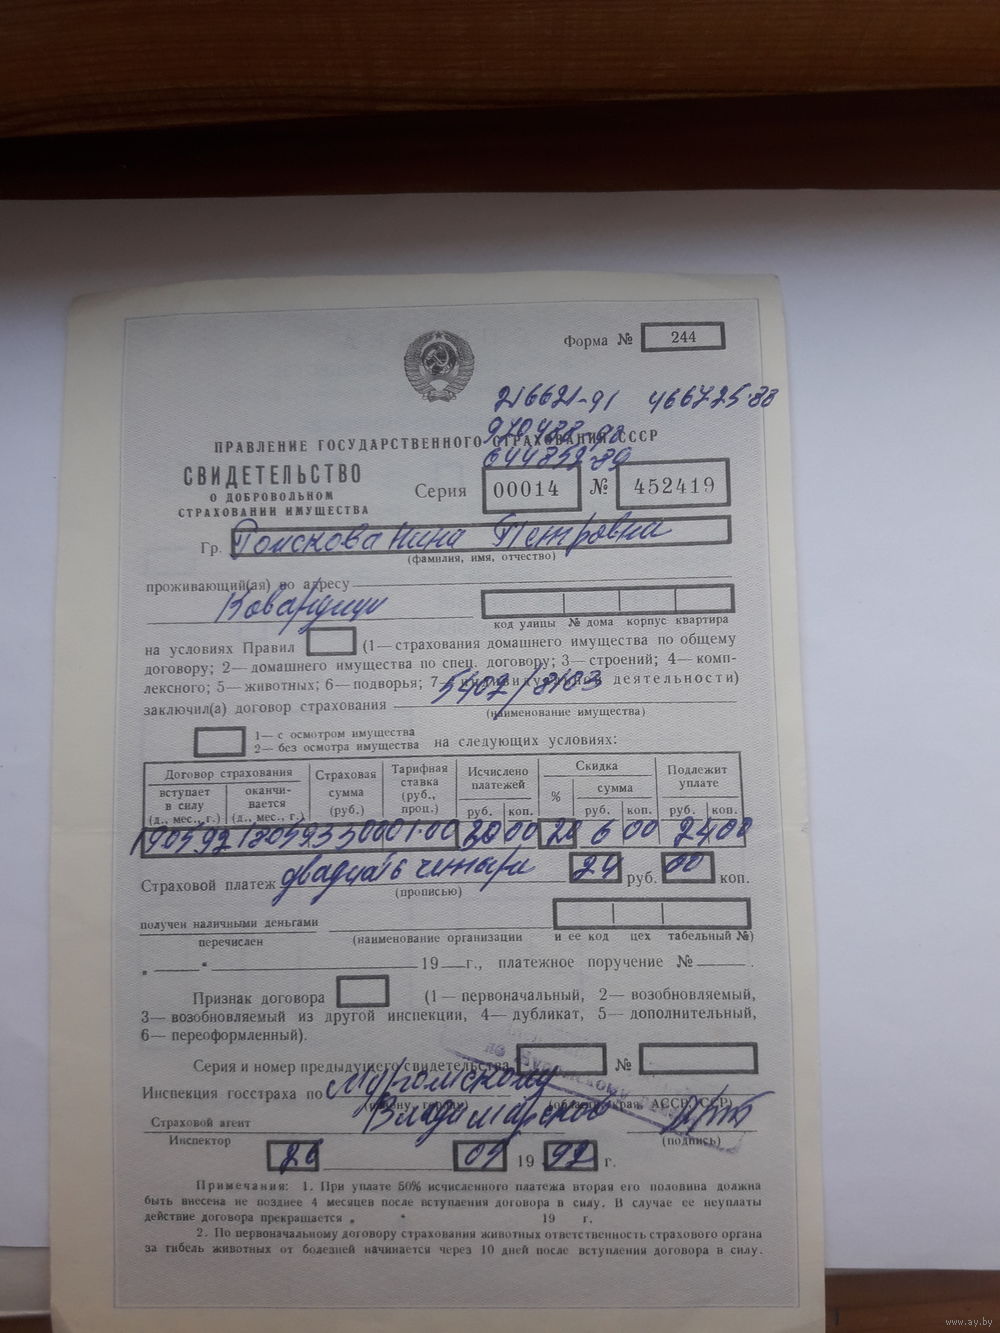 Форма № 244
216621-91 466725-88
970488-92
ПРАВЛЕНИЕ ГОСУДАРСТВЕННОГО СТРАХОВАНИЯ СССР
644852-89
СВИДЕТЕЛЬСТВО
О ДОБРОВОЛЬНОМ
СТРАХОВАНИИ ИМУЩЕСТВА
Серия 00014 № 452419
Гр. Нина Петровна
(фамилия, имя, отчество)
проживающий(ая) по адресу
код улицы № дома корпус квартира
на условиях Правил (1— страхования домашнего имущества по общему
договору; 2— домашнего имущества по спец. договору; 3— строений; 4— комп-
лексного; 5— животных; 6— подворья; 7— индивидуальной деятельности)
5402/8103
заключил(а) договор страхования
(наименование имущества)
1— с осмотром имущества
2— без осмотра имущества на следующих условиях:
Договор страхования
вступает в силу (д., мес., г.)
оканчи- вается (д., мес., г.)
Страховая сумма (руб.)
Тарифная ставка (руб., проц.)
Исчислено платежей руб. коп.
Скидка % сумма руб. коп.
Подлежит уплате руб. коп.
190592 180593 3000 1-00 30 00 20 6 00 24 00
Страховой платеж двадцать четыре 24 руб. 00 коп.
(прописью)
получен наличными деньгами
перечислен
(наименование организации и ее код цех табельный №)
„ “ 19 г., платежное поручение № .
Признак договора (1— первоначальный, 2— возобновляемый,
3— возобновляемый из другой инспекции, 4— дубликат, 5— дополнительный,
6— переоформленный).
Серия и номер предыдущего свидетельства №
Инспекция госстраха по
(району, городу) (область, край, АССР, ССР)
Страховой агент
Инспектор
(подпись)
26 05 19 92 г.
Примечания: 1. При уплате 50% исчисленного платежа вторая его половина должна
быть внесена не позднее 4 месяцев после вступления договора в силу. В случае ее неуплаты
действие договора прекращается „ “ 19 г.
2. По первоначальному договору страхования животных ответственность страхового органа
за гибель животных от болезней начинается через 10 дней после вступления договора в силу.
www.ay.by